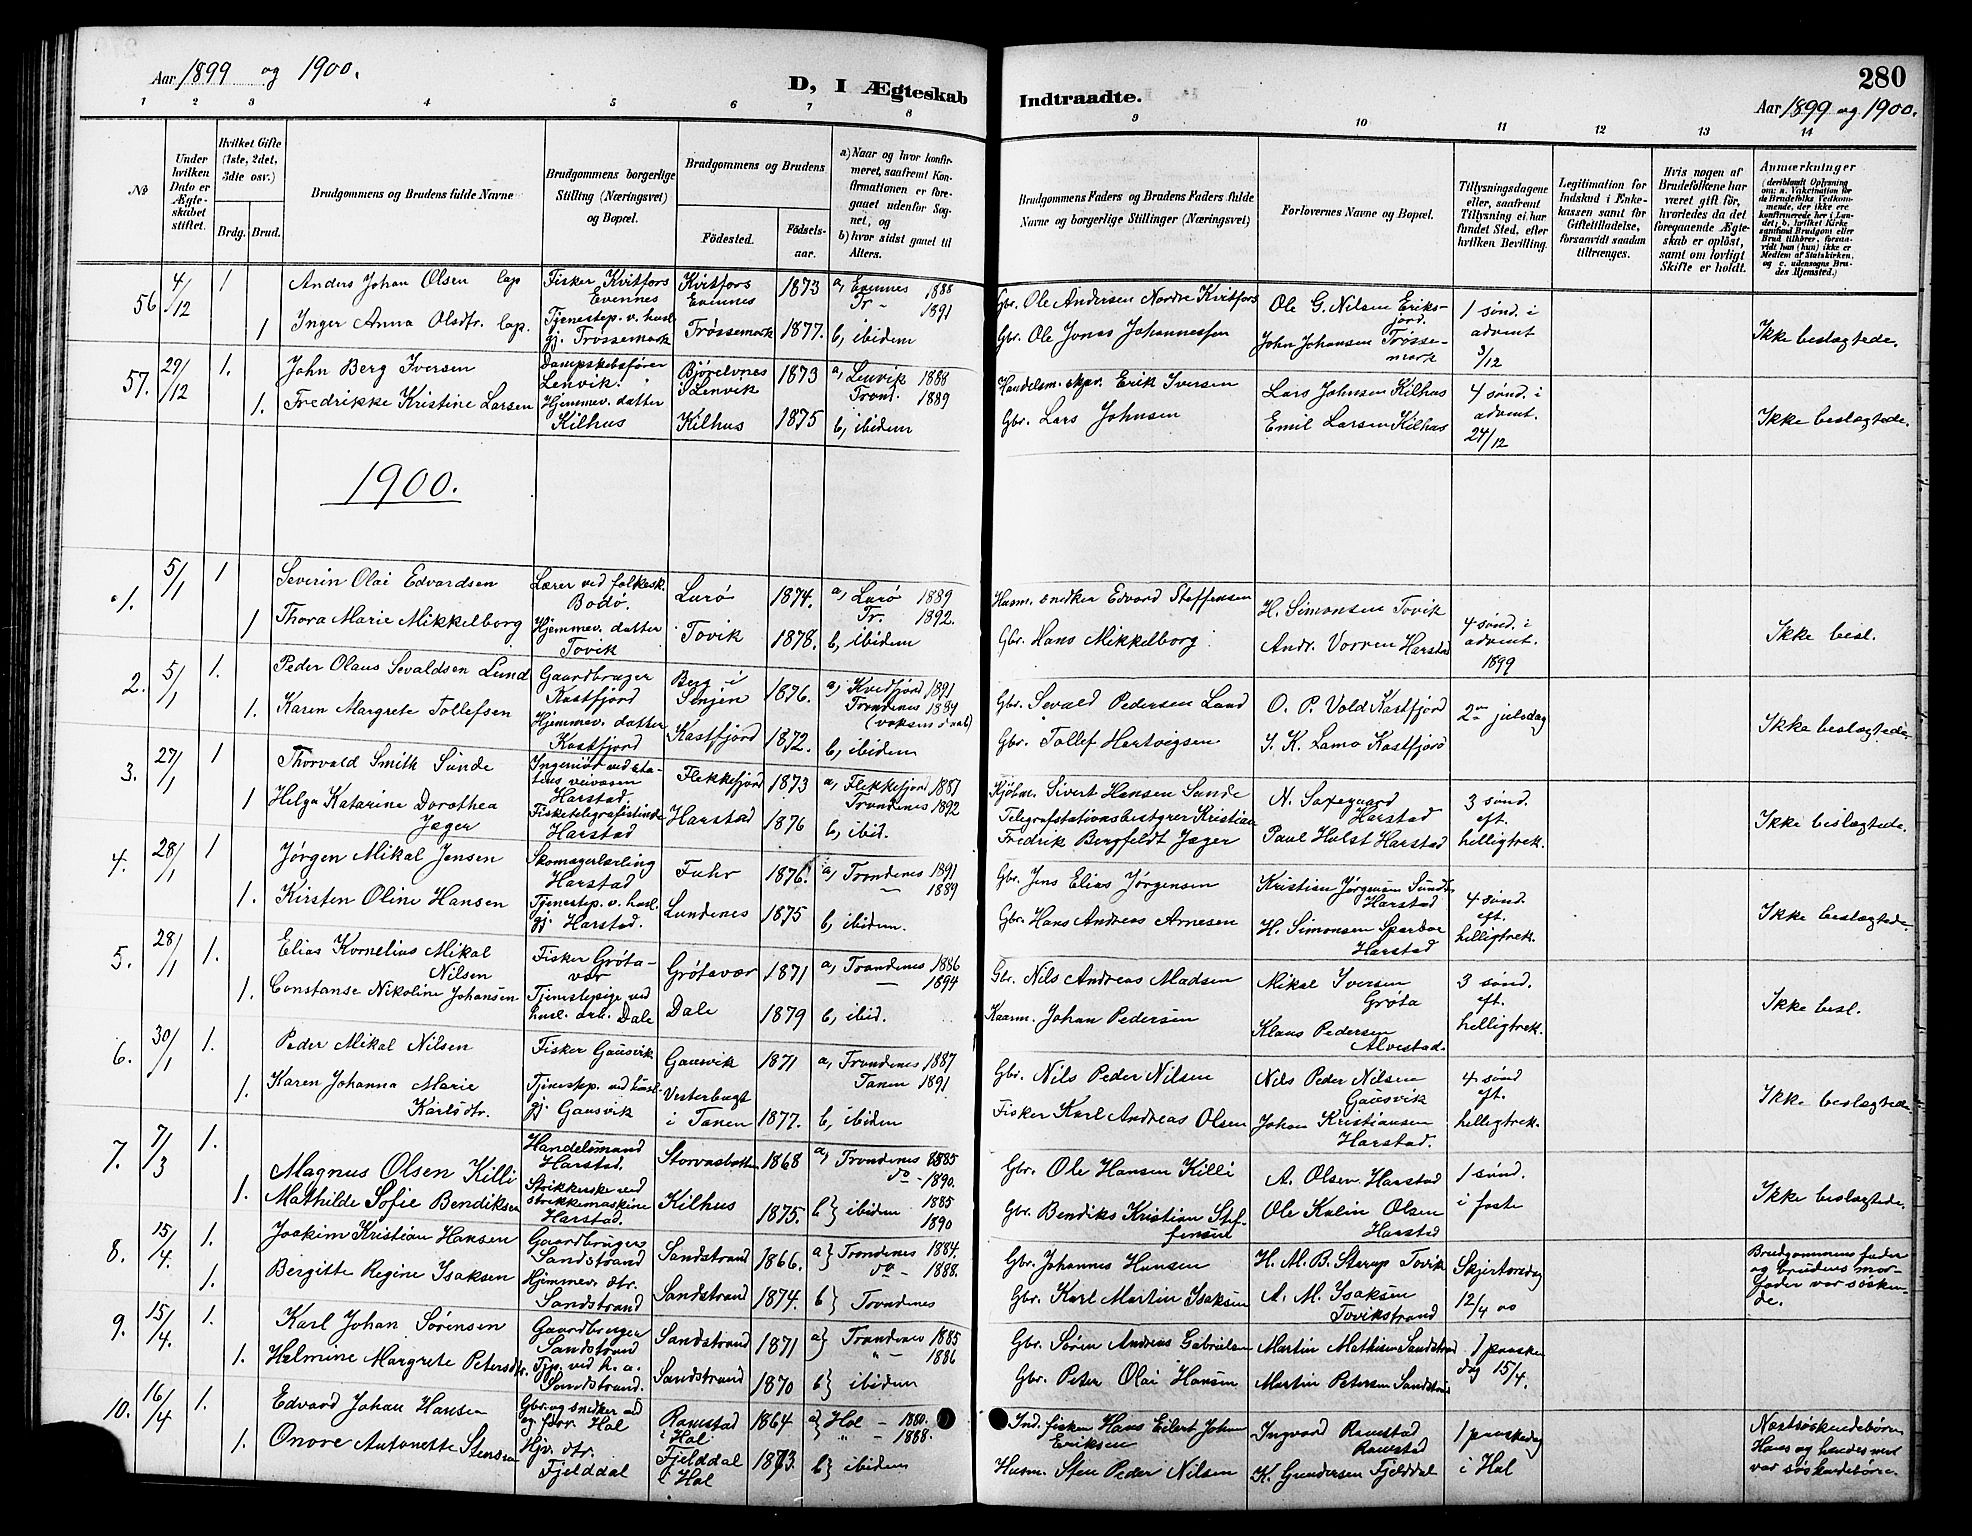 Aar 1899 og 1900.
D, I Ægteskab
Indtraadte.
280
Aar 1899 og 1900.
1 2 3 4 5 6 7 8
9 10 11 12 13 14
No
Under hvilken Dato er Ægteskabet stiftet.
Hvilket Gifte (1ste, 2det, 3die osv.)
Brdg. Brud.
Brudgommens og Brudens fulde Navne
Brudgommens borgerlige Stilling (Næringsvei) og Bopæl.
Brudgommens og Brudens
Fødested.
Fødselsaar.
a) Naar og hvor konfirmeret, saafremt Konfirmationen er foregaaet udenfor Sognet, og
b) hvor sidst gaaet til Alters.
Brudgommens Faders og Brudens Faders fulde Navne og borgerlige Stillinger (Næringsvei)
Forlovernes Navne og Bopæl.
Tillysningsdagene eller, saafremt Tillysning ei har fundet Sted, efter hvilken Bevilling.
Legitimation for Indskud i Enkekassen samt for Giftetilladelse, forsaavidt saadan tiltrænges.
Hvis nogen af Brudefolkene har været gift før, hvorledes da det foregaaende Ægteskab er opløst, samt om lovligt Skifte er holdt.
Anmærkninger
(deriblandt Oplysning om: a. Vakcination for de Brudefolks Vedkommende, der ikke ere konfirmerede her i Landet; b. hvilket Kirkesamfund Brudgom eller Brud tilhører, forsaavidt han (hun) ikke er Medlem af Statskirken, og c. udensogns Brudes Hjemsted.
56 4/12 1 Anders Johan Olsen lap Fisker, Kvitfors Evennes Kvitfors Evennes 1873 a, Evennes 1888 Gbr. Ole Andersen Nordre Kvitfors Ole G. Nilsen Eriksfjord. 1 sønd. i advent 3/12
1 Inger Anna Olsdtr. lap. Tjenestep. v. husl. gj. Trøssemark Trøssemark 1877. Tr. 1891 b, ibidem Gbr. Ole Jonas Johannessen John Johansen Trøssemark Ikke beslægtede.
57. 29/12 1. John Berg Iversen Dampskibsfører Lenvik. Bjørelvnes i Lenvik 1873 a, Lenvik 1888 Handelsm. Erik Iversen Lars Johnsen Kilhus 4 sønd. i advent. 24/12
1. Fredrikke Kristine Larsen Hjemmev. datter Kilhus Kilhus 1875 Trond. 1889 b, ibidem Gbr. Lars Johnsen Emil Larsen Kilhus Ikke beslægtede.
1900.
1. 5/1 1 Severin Olai Edvardsen Lærer ved folkesk. Bodø. Lurø 1874. a, Lurø 1889 Husm. snedker Edvard Steffensen H. Simonsen Tovik 4 sønd. i advent. 1899
1 Thora Marie Mikkelborg Hjemmev. datter Tovik Tovik 1878. Tr. 1892. b, ibidem Gbr. Hans Mikkelborg Andr. Vorren Harstad Ikke besl.
2. 5/1 1. Peder Olaus Sevaldsen Lund Gaardbruger Kastfjord Berg i Senjen 1876. a, Kvedfjord 1891 Gbr. Sevald Pedersen Lund O. P. Vold Kastfjord 2en juledag
1. Karen Margrete Tollefsen Hjemmev. datter Kastfjord Kastfjord 1872. Trondenes 1884 (voksen daab) b, ibidem Gbr. Tollef Hertvigsen J. K. Lamo Kastfjord Ikke beslægtede.
3. 27/1 1 Thorvald Smith Sunde Ingeniør ved statens veivæsen Harstad. Flekkefjord 1873 a, Flekkefjord 1887 Kjøbm. Sivert Hansen Sunde N. Saxegaard Harstad 3 sønd. eft. helligtrek.
1 Helga Katarine Dorothea Jæger Fisketelegrafistinde Harstad Harstad 1876 Trondenes 1892 b, ibid. Telegrafstationsbestyrer Kristian Fredrik Bergfeldt Jæger Paul Holst Harstad Ikke beslægtede.
4. 28/1 1 Jørgen Mikal Jensen Skomagerlærling Harstad 1876. a, Trondenes 1891 Gbr. Jens Elias Jørgensen Kristian Jørgensen Harstad 4 sønd. eft. helligtrek.
1. Kirsten Oline Hansen Tjenestep. v. husl. gj. Harstad. Lundenes 1875 1889 b, ibidem. Gbr. Hans Andreas Arnesen H. Simonsen Sparboe Harstad Ikke beslægtede.
5. 28/1 1. Elias Kornelius Mikal Nilsen Fisker Grøtavær Grøtavær 1871 a, Trondenes 1886 Gbr. Nils Andreas Madsen Mikal Iversen Grøta 3 sønd. eft. helligtrek.
1. Constanse Nikoline Johansen Tjenestepige ved husl. arb. Dale Dale 1879 1894 b, ibid. Kaarm. Johan Pedersen Klaus Pedersen Alvestad. Ikke besl.
6. 30/1 1. Peder Mikal Nilsen Fisker Gausvik Gausvik 1871 a, Trondenes 1887 Gbr. Nils Peder Nilsen Nils Peder Nilsen Gausvik 4 sønd eft. helligtrek.
1. Karen Johanna Marie Karlsdtr. Tjenestep. ved husl. gj. Gausvik Vesterbugt i Tanen 1877. Tanen 1891 b, ibidem Fisker Karl Andreas Olsen Johan Kristiansen Harstad. Ikke beslægtede
7. 7/3 1. Magnus Olsen Killi Handelsmand Harstad. Storvasbotten 1868 a, Trondenes 1885 Gbr. Ole Hansen Killi A. Olsen Harstad 1 sønd. i faste
1. Mathilde Sofie Bendiksen Strikkerske ved strikkemaskine Harstad. Kilhus 1875. do - 1890. b} ibidem 1885 1890 Gbr. Bendiks Kristian Steffensen Ole Kalin Olsen Harstad Ikke beslægtede.
8. 15/4. 1. Joakim Kristian Hansen Gaardbruger Sandstrand Sandstrand 1866. a} Trondenes 1884. Gbr. Johannes Hansen H. M. B. Sterup Tovik Skjertorsdag 12/4 00
1. Bergitte Regine Isaksen Hjemmev. dtr. Sandstrand Sandstrand 1874. do - 1888. b} Trondenes Gbr. Karl Martin Isaksen A. M. Isaksen Tovikstrand Brudgommens fader og brudens morfader var søskende.
9. 15/4. 1. Karl Johan Sørensen Gaardbruger Sandstrand Sandstrand 1871 a} Trondenes 1885 Gbr. Søren Andreas Gabrielsen Martin Mathisen Sandstrand 1 paaskedag 15/4.
1. Helmine Margrete Petersdtr. Tjp. ved h. a. Sandstrand. Sandstrand 1870 1886 b} ibidem Gbr. Peter Olai Hansen Martin Petersen Sandstrand
10. 16/4 1. Edvard Johan Hansen Gbr. og snedker Hol Ramstad i Hol 1864 a} Hol - 1880. Ind. fisker Hans Eilert Johan Eriksen Ingvard Ramstad Ramstad 1 paaskedag i Hol
1. Onore Antonette Stensen Hjv. dtr. Fjelddal Fjelddal i Hol 1873. 1888. b} ibidem Husm. Sten Peder Nilsen K. Gundersen Fjelddal Næstsøskendebørn Hans og hendes var søskendebørn.